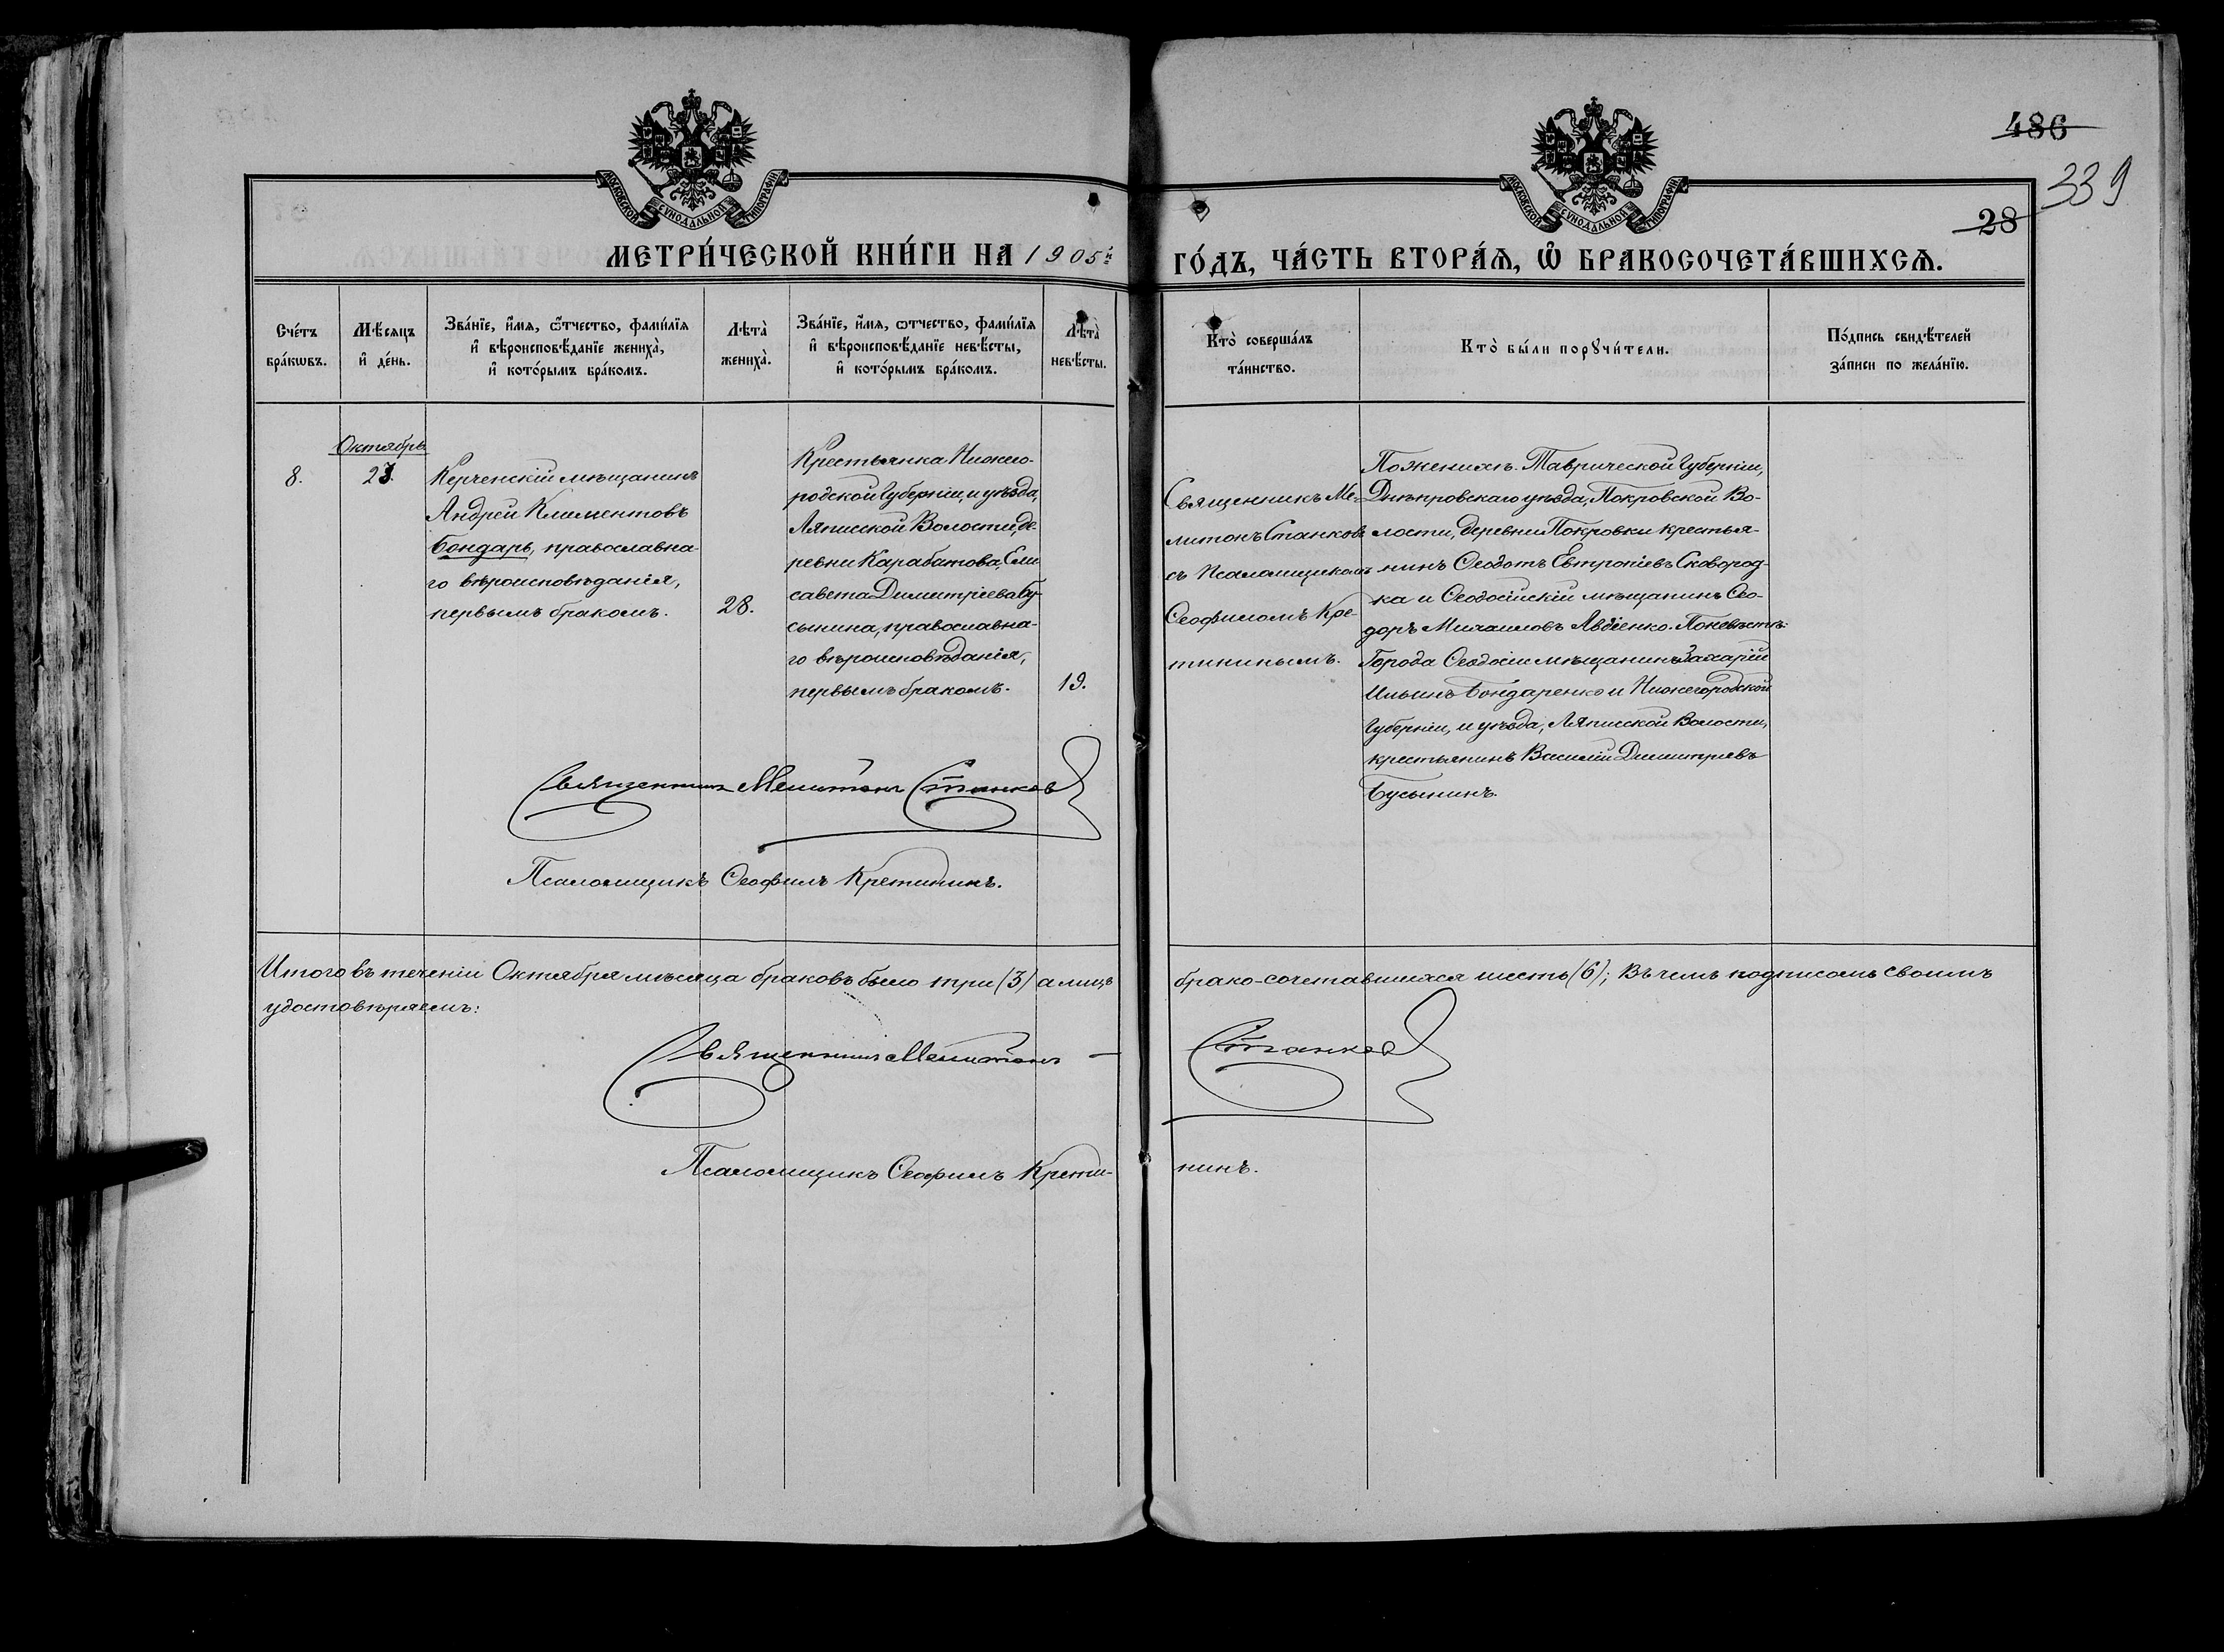 486
339
28
МОСКОВСКОЙ СѴНОДАЛЬНОЙ ТИПОГРАФІИ
МОСКОВСКОЙ СѴНОДАЛЬНОЙ ТИПОГРАФІИ
МЕТРИ́ЧЕСКОЙ КНИ́ГИ НА 1905й ГО́ДЪ, ЧА́СТЬ ВТОРА́Ѧ, Ѽ БРАКОСОЧЕТА́ВШИХСѦ.
Сче́тъ
бра́кѡвъ.
Мѣ́сяцъ
и҆ де́нь.
Зва́нїе, и҆́мя, ѻ҆́тчество, фами́лїя
и҆ вѣроисповѣ́данїе жениха̀,
и҆ кото́рымъ бра́комъ.
Лѣта̀
жениха̀.
Зва́нїе, и҆́мя, ѻтчество, фами́лїя
и҆ вѣроисповѣ́данїе невѣ́сты,
и҆ кото́рымъ бра́комъ.
Лѣта̀
невѣ́сты.
Кто̀ соверша́лъ
та́инство.
Кто̀ бы́ли порꙋчи́тели.
По́дпись свидѣ́телей
за́писи по жела́нїю.
8.
Октябрь
23.
Керченскій мѣщанинъ
Андрей Климентовъ
Бондарь, православна-
го вѣроисповѣданія,
первымъ бракомъ.
28.
Крестьянка Нижего-
родской Губерніи, и уѣзда,
Ляписской Волости, де
ревни Карабатова, Ели
савета Димитріева Бу-
сынина, православна-
го вѣроисповѣданія,
первымъ бракомъ.
19.
Священникъ Ме-
литонъ Станковъ
съ Псаломщикомъ
Ѳеофиломъ Кре-
тининымъ.
По женихѣ. Таврической Губерніи,
Днѣпровскаго уѣзда, Покровской Во-
лости, деревни Покровки крестья-
нинъ Ѳеодотъ Евтропіевъ Сковород-
ка и Ѳеодосійскій мѣщанинъ Ѳео-
доръ Михаиловъ Авдіенко. По невѣстѣ:
Города Ѳеодосіи мѣщанинъ Захарій
Ильинъ Бондаренко и Нижегородской
Губерніи, и уѣзда, Ляписской Волости,
крестьянинъ Василій Димитріевъ
Бусынинъ.
Священникъ Мелитонъ Станковъ
Псаломщикъ Ѳеофилъ Кретининъ.
Итого въ теченіи Октября мѣсяца браковъ было три (3) а лицъ брако-сочетавшихся шесть (6); Въ чемъ подписомъ своимъ
удостовѣряемъ:
Священникъ Мелитонъ — Станковъ
Псаломщикъ Ѳеофилъ Крети-нинъ.